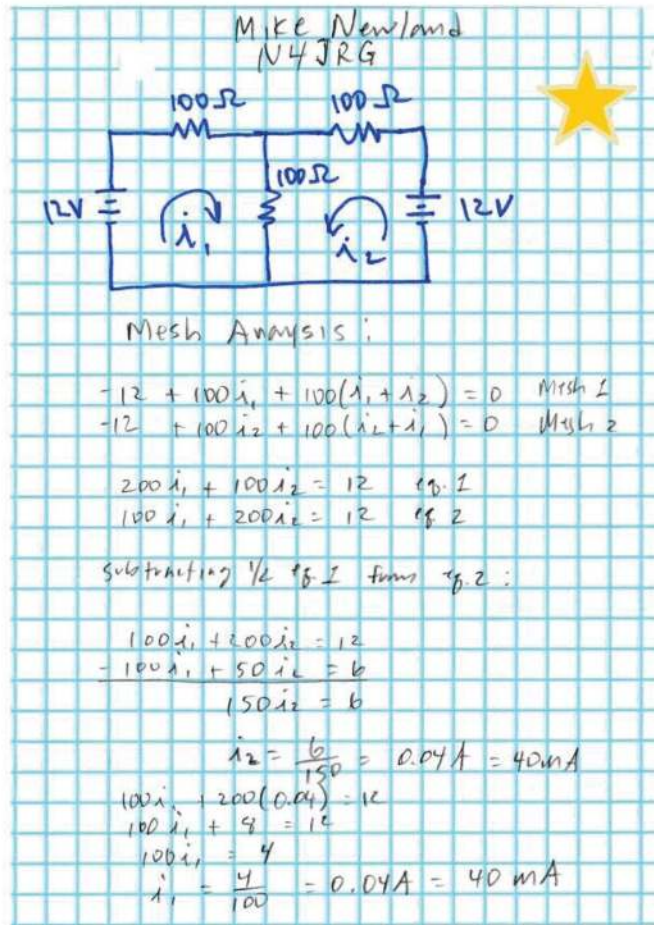 Mike Newland
N4JRG
100Ω 100Ω
100Ω
12V i₁ i₂ 12V
Mesh Anaysis:
-12 + 100i₁ + 100(i₁ + i₂) = 0 Mesh 1
-12 + 100i₂ + 100(i₂+i₁) = 0 Mesh 2
200i₁ + 100i₂ = 12 eq. 1
100i₁ + 200i₂ = 12 eq 2
subtracting 1/2 eq. 1 from eq. 2:
100i₁ + 200i₂ = 12
- 100i₁ + 50i₂ = 6
150i₂ = 6
i₂ = 6/150 = 0.04A = 40mA
100i₁ + 200(0.04) = 12
100i₁ + 8 = 12
100i₁ = 4
i₁ = 4/100 = 0.04A = 40 mA